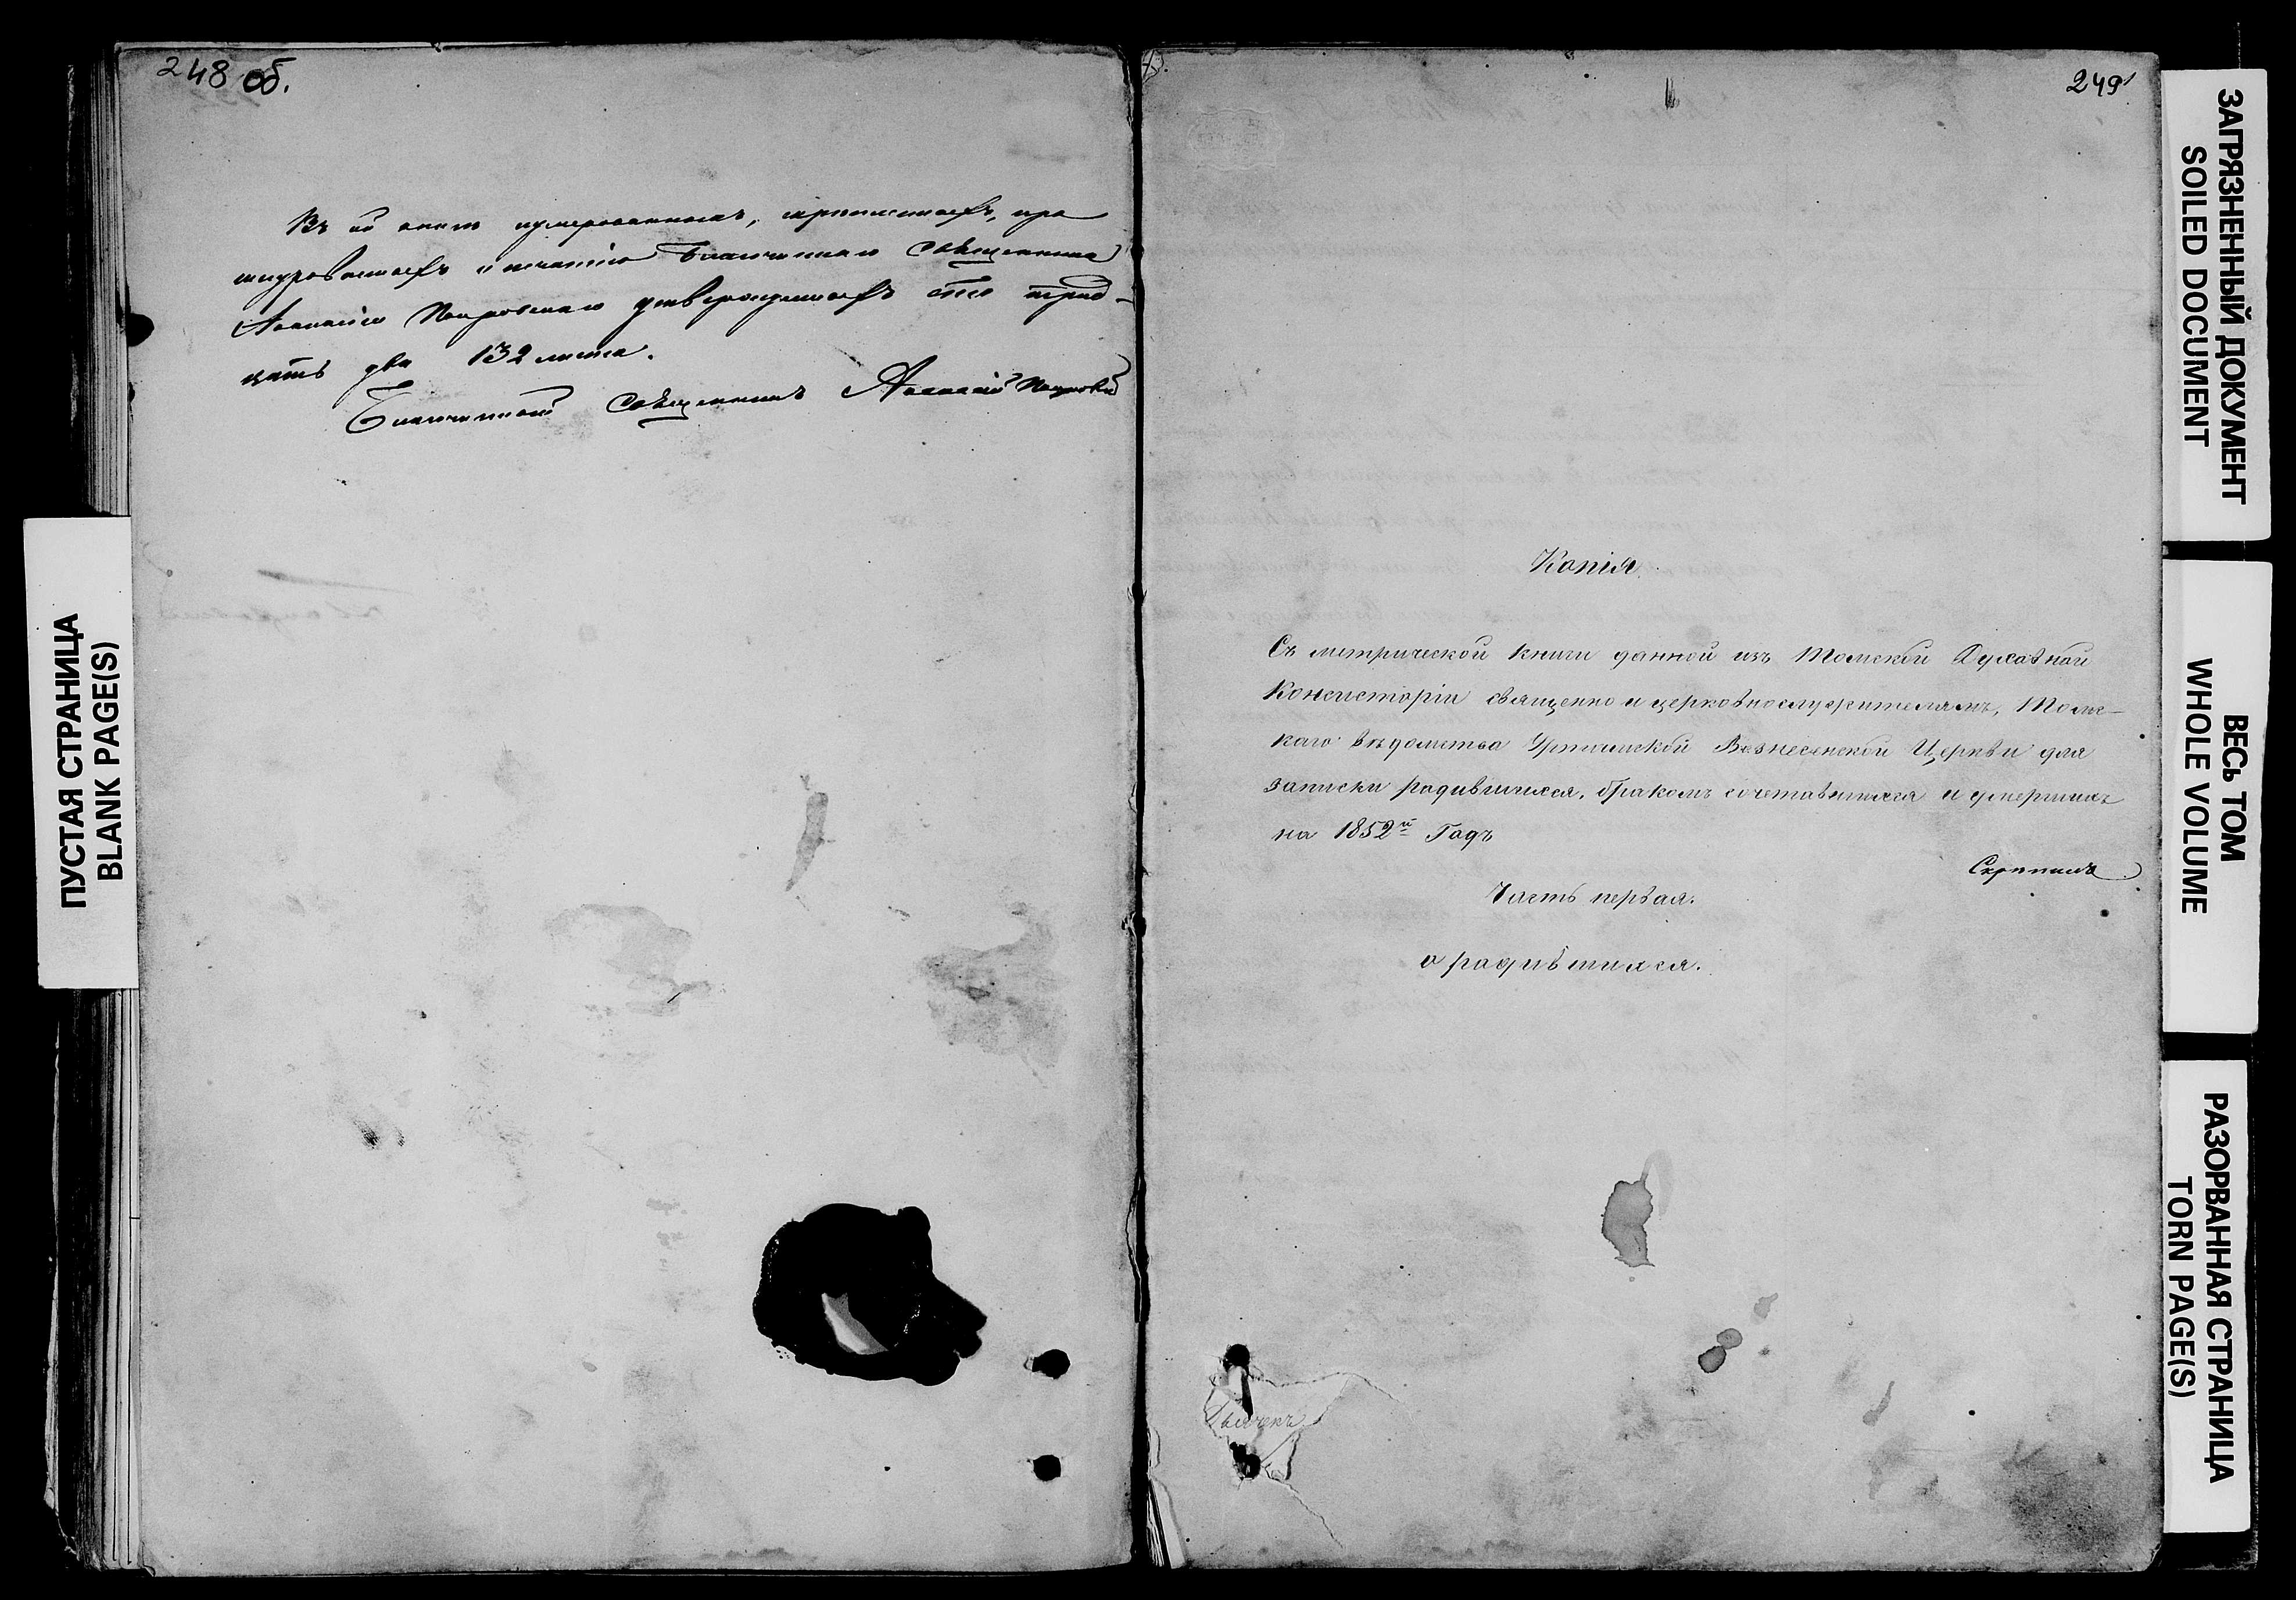 248 об.
Въ ей книгѣ нумерованныхъ, скрѣпленныхъ, про
шнурованныхъ и печатію Благочиннаго Священника
Покровскаго утвержденныхъ сто трид-
цать два 132 листа.
Благочинный Священникъ
ПУСТАЯ СТРАНИЦА
BLANK PAGE(S)
249
Копія
Съ метрической книги данной изъ Томской Духовной
Консисторіи священно и церковнослужителямъ, Томс-
каго вѣдомства Уртамской Вознесенской Церкви для
записки родившихся, бракомъ сочетавшихся и умершихъ
на 1852й Годъ
Часть первая.
о родившихся.
ЗАГРЯЗНЕННЫЙ ДОКУМЕНТ
SOILED DOCUMENT
ВЕСЬ ТОМ
WHOLE VOLUME
РАЗОРВАННАЯ СТРАНИЦА
TORN PAGE(S)